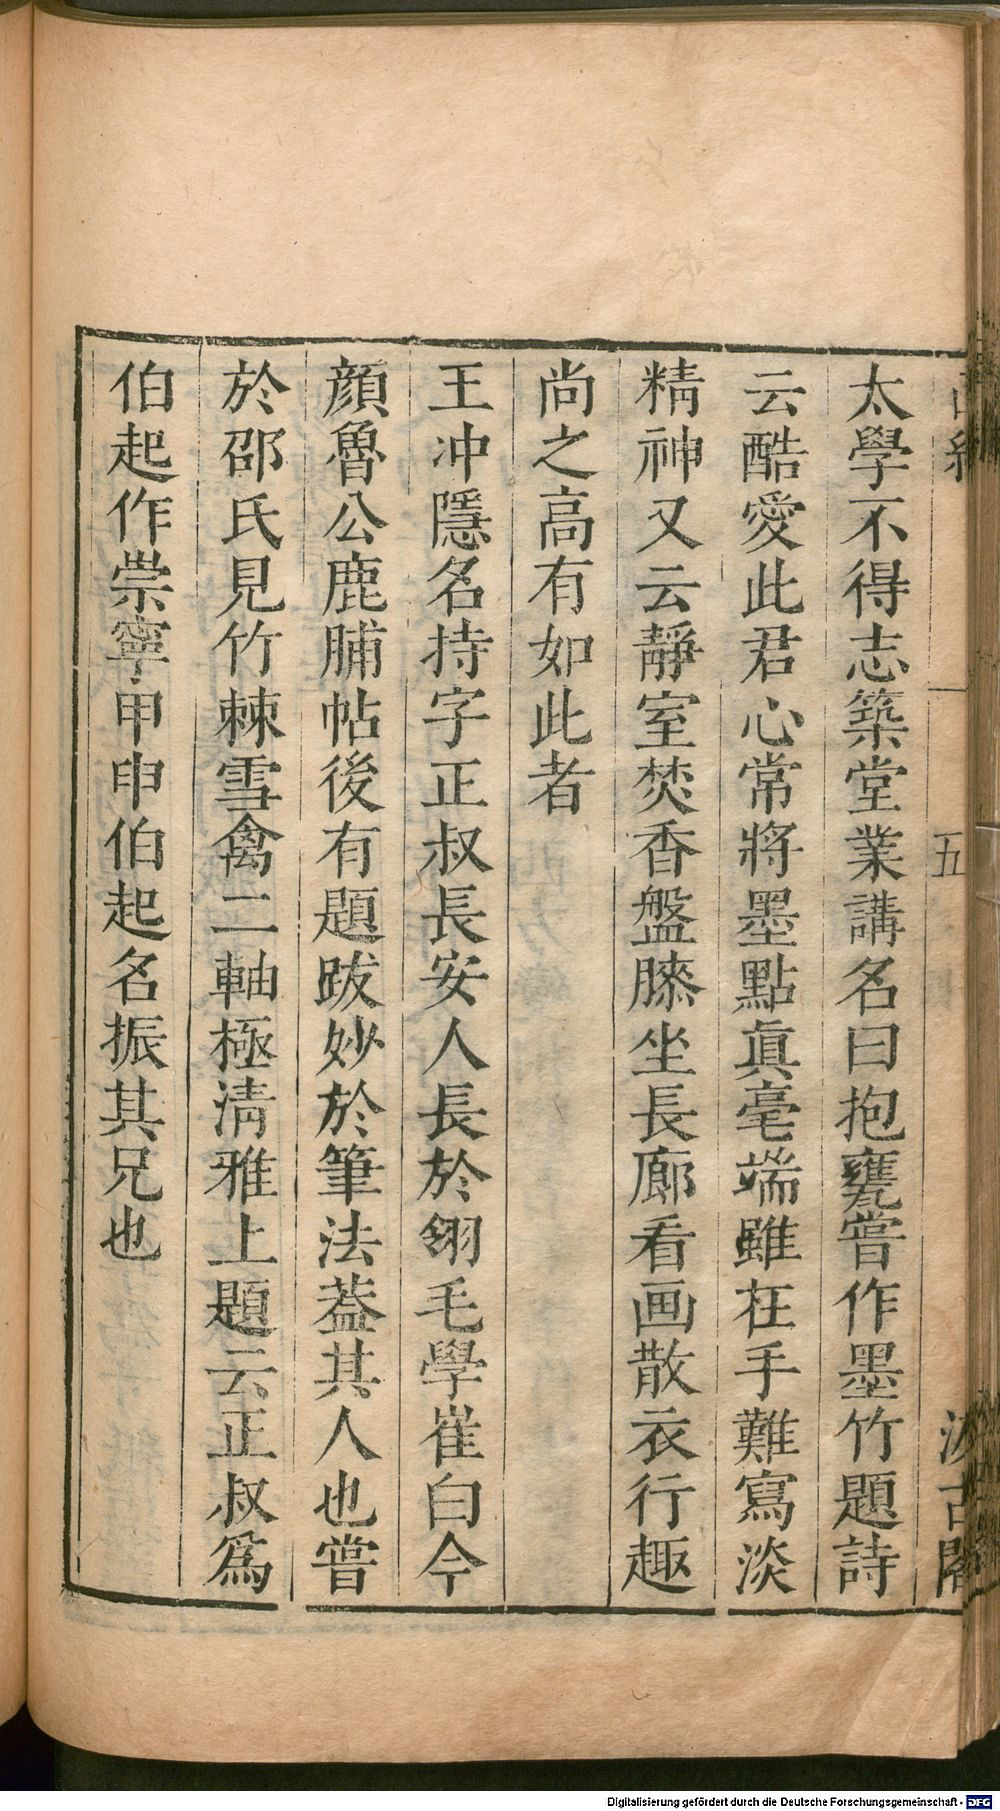 五
汲古閣
太學不得志築堂業講名曰抱甕嘗作墨竹題詩
云酷愛此君心常將墨點眞毫端雖在手難寫淡
精神又云靜室焚香盤膝坐長廊看画散衣行趣
尚之高有如此者
王冲隱名持字正叔長安人長於翎毛學崔白今
顔魯公鹿脯帖後有題跋妙於筆法葢其人也嘗
於邵氏見竹棘雪禽二軸極淸雅上題云正叔爲
伯起作崇寧甲申伯起名振其兄也
Digitalisierung gefördert durch die Deutsche Forschungsgemeinschaft - DFG